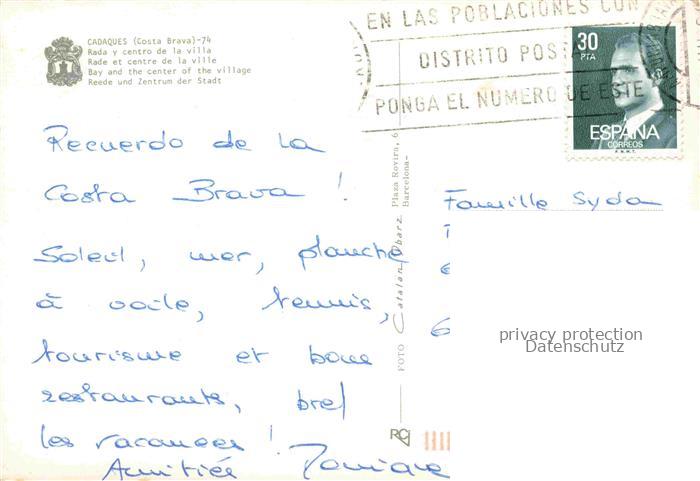 CADAQUES (Costa Brava)-74
Rada y centro de la villa
Rade et centre de la ville
Bay and the center of the village
Reede und Zentrum der Stadt
EN LAS POBLACIONES CON
DISTRITO POSTA
PONGA EL NUMERO DE ESTE
30
PTA
ESPAÑA
CORREOS
F.N.M.T.
Recuerdo de la
Costa Brava !
Soleil, mer, planche
à voile, tennis,
tourisme et bons
restaurants, bref
les vacances !
Amitiés
FOTO Catalan Ibarz Plaza Rovira, 6
Barcelona-
Famille Syda
privacy protection
Datenschutz